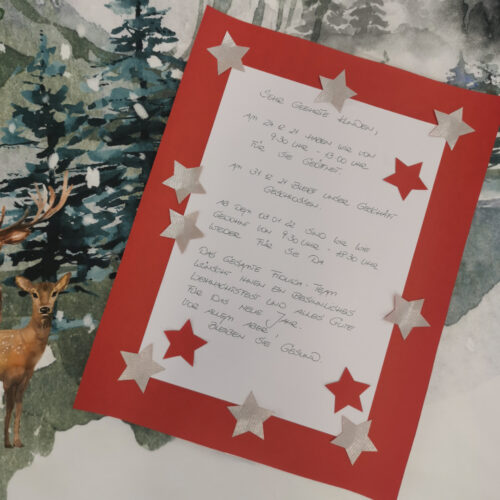 SEHR GEEHRTE KUNDEN,
AM 24.12.21 HABEN WIR VON
9:30 UHR - 13:00 UHR
FÜR SIE GEÖFFNET
AM 31.12.21 BLEIBT UNSER GESCHÄFT
GESCHLOSSEN
AB DEM 03.01.22 SIND WIR WIE
GEWOHNT VON 9:30 UHR - 18:30 UHR
WIEDER FÜR SIE DA
DAS GESAMTE TEAM
WÜNSCHT IHNEN EIN BESINNLICHES
WEIHNACHTSFEST UND ALLES GUTE
FÜR DAS NEUE JAHR.
VOR ALLEM ABER!
BLEIBEN SIE GESUND.